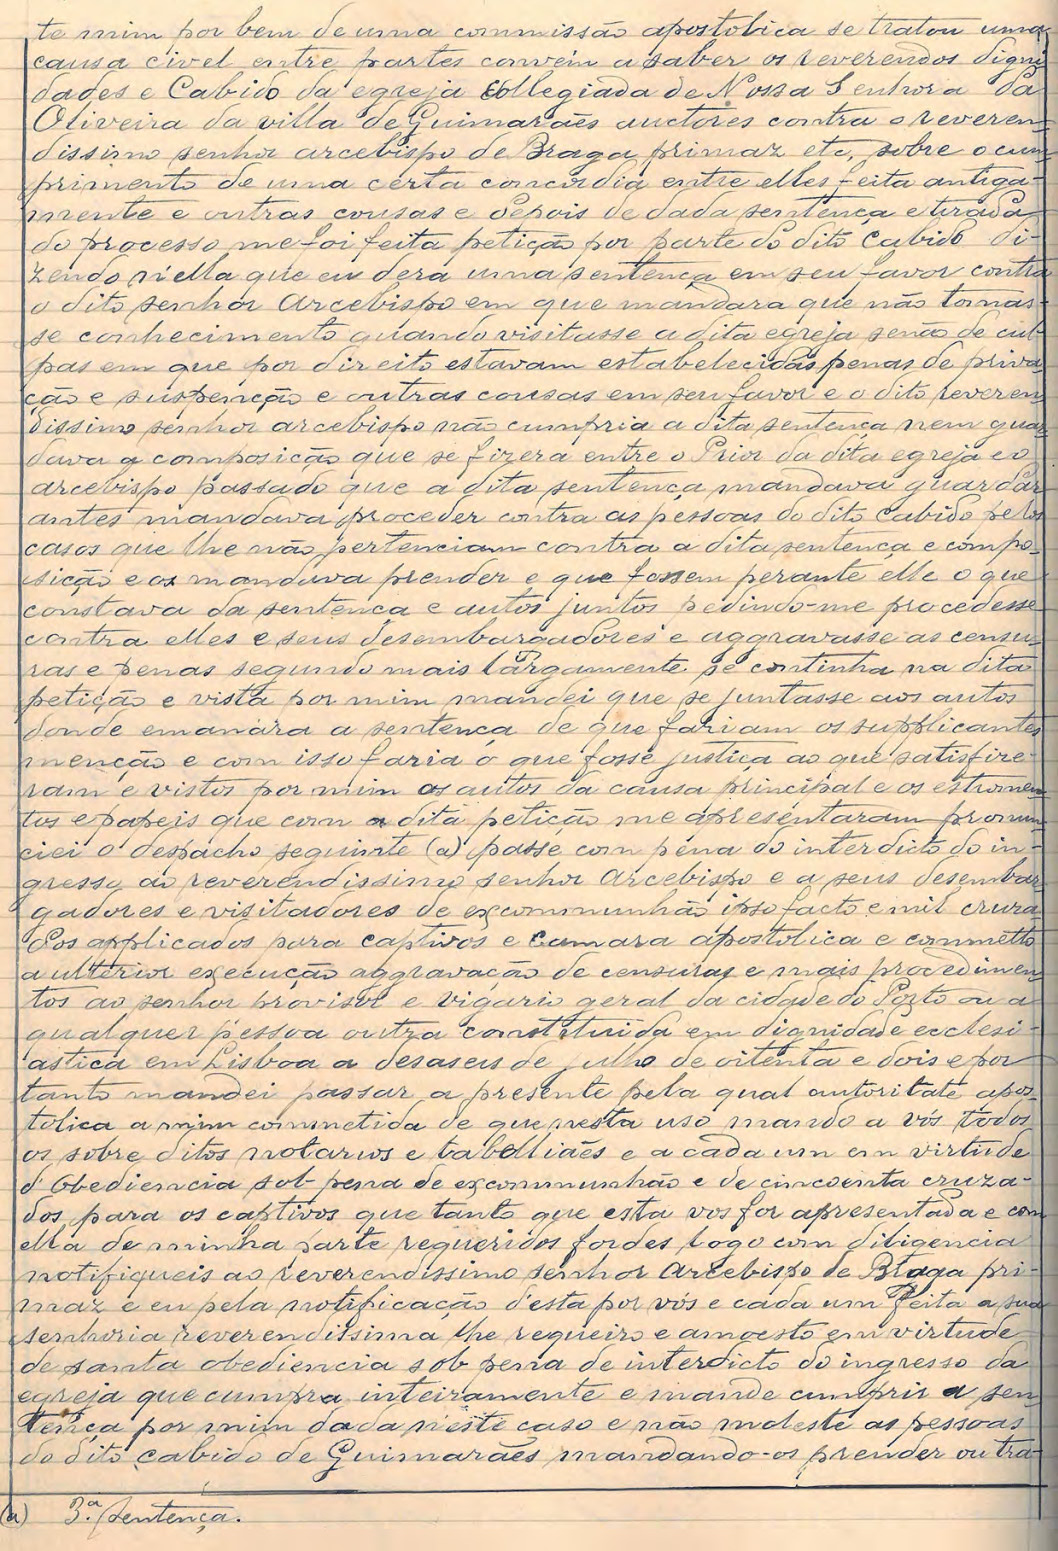 te mim por bem de uma commissão apostolica se tratou uma
causa civel entre partes convém a saber os reverendos digni
dades e Cabido da egreja collegiada de Nossa Senhora da
Oliveira da villa de Guimarães auctores contra o reveren
dissimo senhor arcebispo de Braga primaz etc, sobre o cum
primento de uma certa concordia entre elles feita antiga-
mente e outras cousas e depois de dada sentença e tirada
do processo me foi feita petição por parte do dito Cabido di-
zendo n'ella que eu dera uma sentença em seu favor contra
o dito senhor Arcebispo em que mandara que não tomas-
se conhecimento quando visitasse a dita egreja senão de cul
pas em que por direito estavam estabelecidas penas de priva
ção e suspenção e outras cousas em seu favor e o dito reveren
dissimo senhor arcebispo não cumpria a dita sentença nem guar
dava a composição que se fizera entre o Prior da dita egreja e o
arcebispo passado que a dita sentença mandava guardar
antes mandava proceder contra as pessoas do dito Cabido pelos
casos que lhe não pertenciam contra a dita sentença e compo-
sição e os mandava prender e que fossem perante elle o que
constava da sentença e autos juntos pedindo-me procedesse
contra elles e seus desembargadores e aggravasse as censu-
ras e penas segundo mais largamente se continha na dita
petição e vista por mim mandei que se juntasse aos autos
donde emanára a sentença de que fariam os supplicantes
menção e com isso faria o que fosse justiça ao que satisfire-
ram e vistos por mim os autos da causa principal e os estromen
tos e papeis que com a dita petição me apresentaram pronun
ciei o despacho seguinte (a) passe com pena do interdicto do in-
gresso ao reverendissimo senhor Arcebispo e a seus desembar
gadores e visitadores de excommunhão ipso facto e mil cruza
dos applicados para captivos e Camara apostolica e commetto
a ulterior execução aggravação de censuras e mais procedimen
tos ao senhor provisor e vigario geral da cidade do Porto ou a
qualquer pessoa outra constituida em dignidade ecclesi-
astica em Lisboa a desaseis de julho de oitenta e dois e por
tanto mandei passar a presente pela qual autoritate apos-
tolica a mim commetida de que n'esta uso mando a vós todos
os sobre ditos notarios e tabelliães e a cada um em virtude
d'obediencia sob pena de excommunhão e de cincoenta cruza-
dos para os captivos que tanto que esta vos for apresentada e com
ella de minha parte requeridos fordes logo com diligencia
notifiqueis ao reverendissimo senhor Arcebispo de Braga pri-
maz e eu pela notificação d'esta por vós e cada um feita a sua
senhoria reverendissima lhe requeiro e amoesto em virtude
de santa obediencia sob pena de interdicto do ingresso da
egreja que cumpra inteiramente e mande cumprir a sen
tença por mim dada n'este caso e não moleste as pessoas
do dito cabido de Guimarães mandando-os prender outra-
(a) 3.ª sentença.